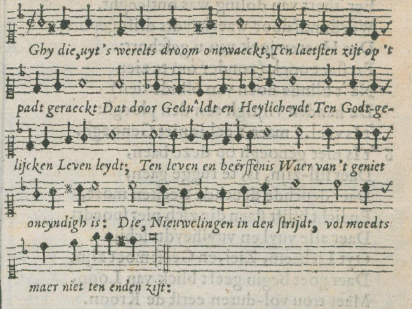 Ghy die, uyt's werelts droom ontwaeckt, Ten laetsten zijt op 't
padt geraeckt Dat door Gedu'ldt en Heylicheydt Ten Godt-ge-
lijcken Leven leydt; Ten leven en beërffenis Waer van't geniet
oneyndigh is: Die, Nieuwelingen in den strijdt, vol moedts
maer niet ten enden zijt: